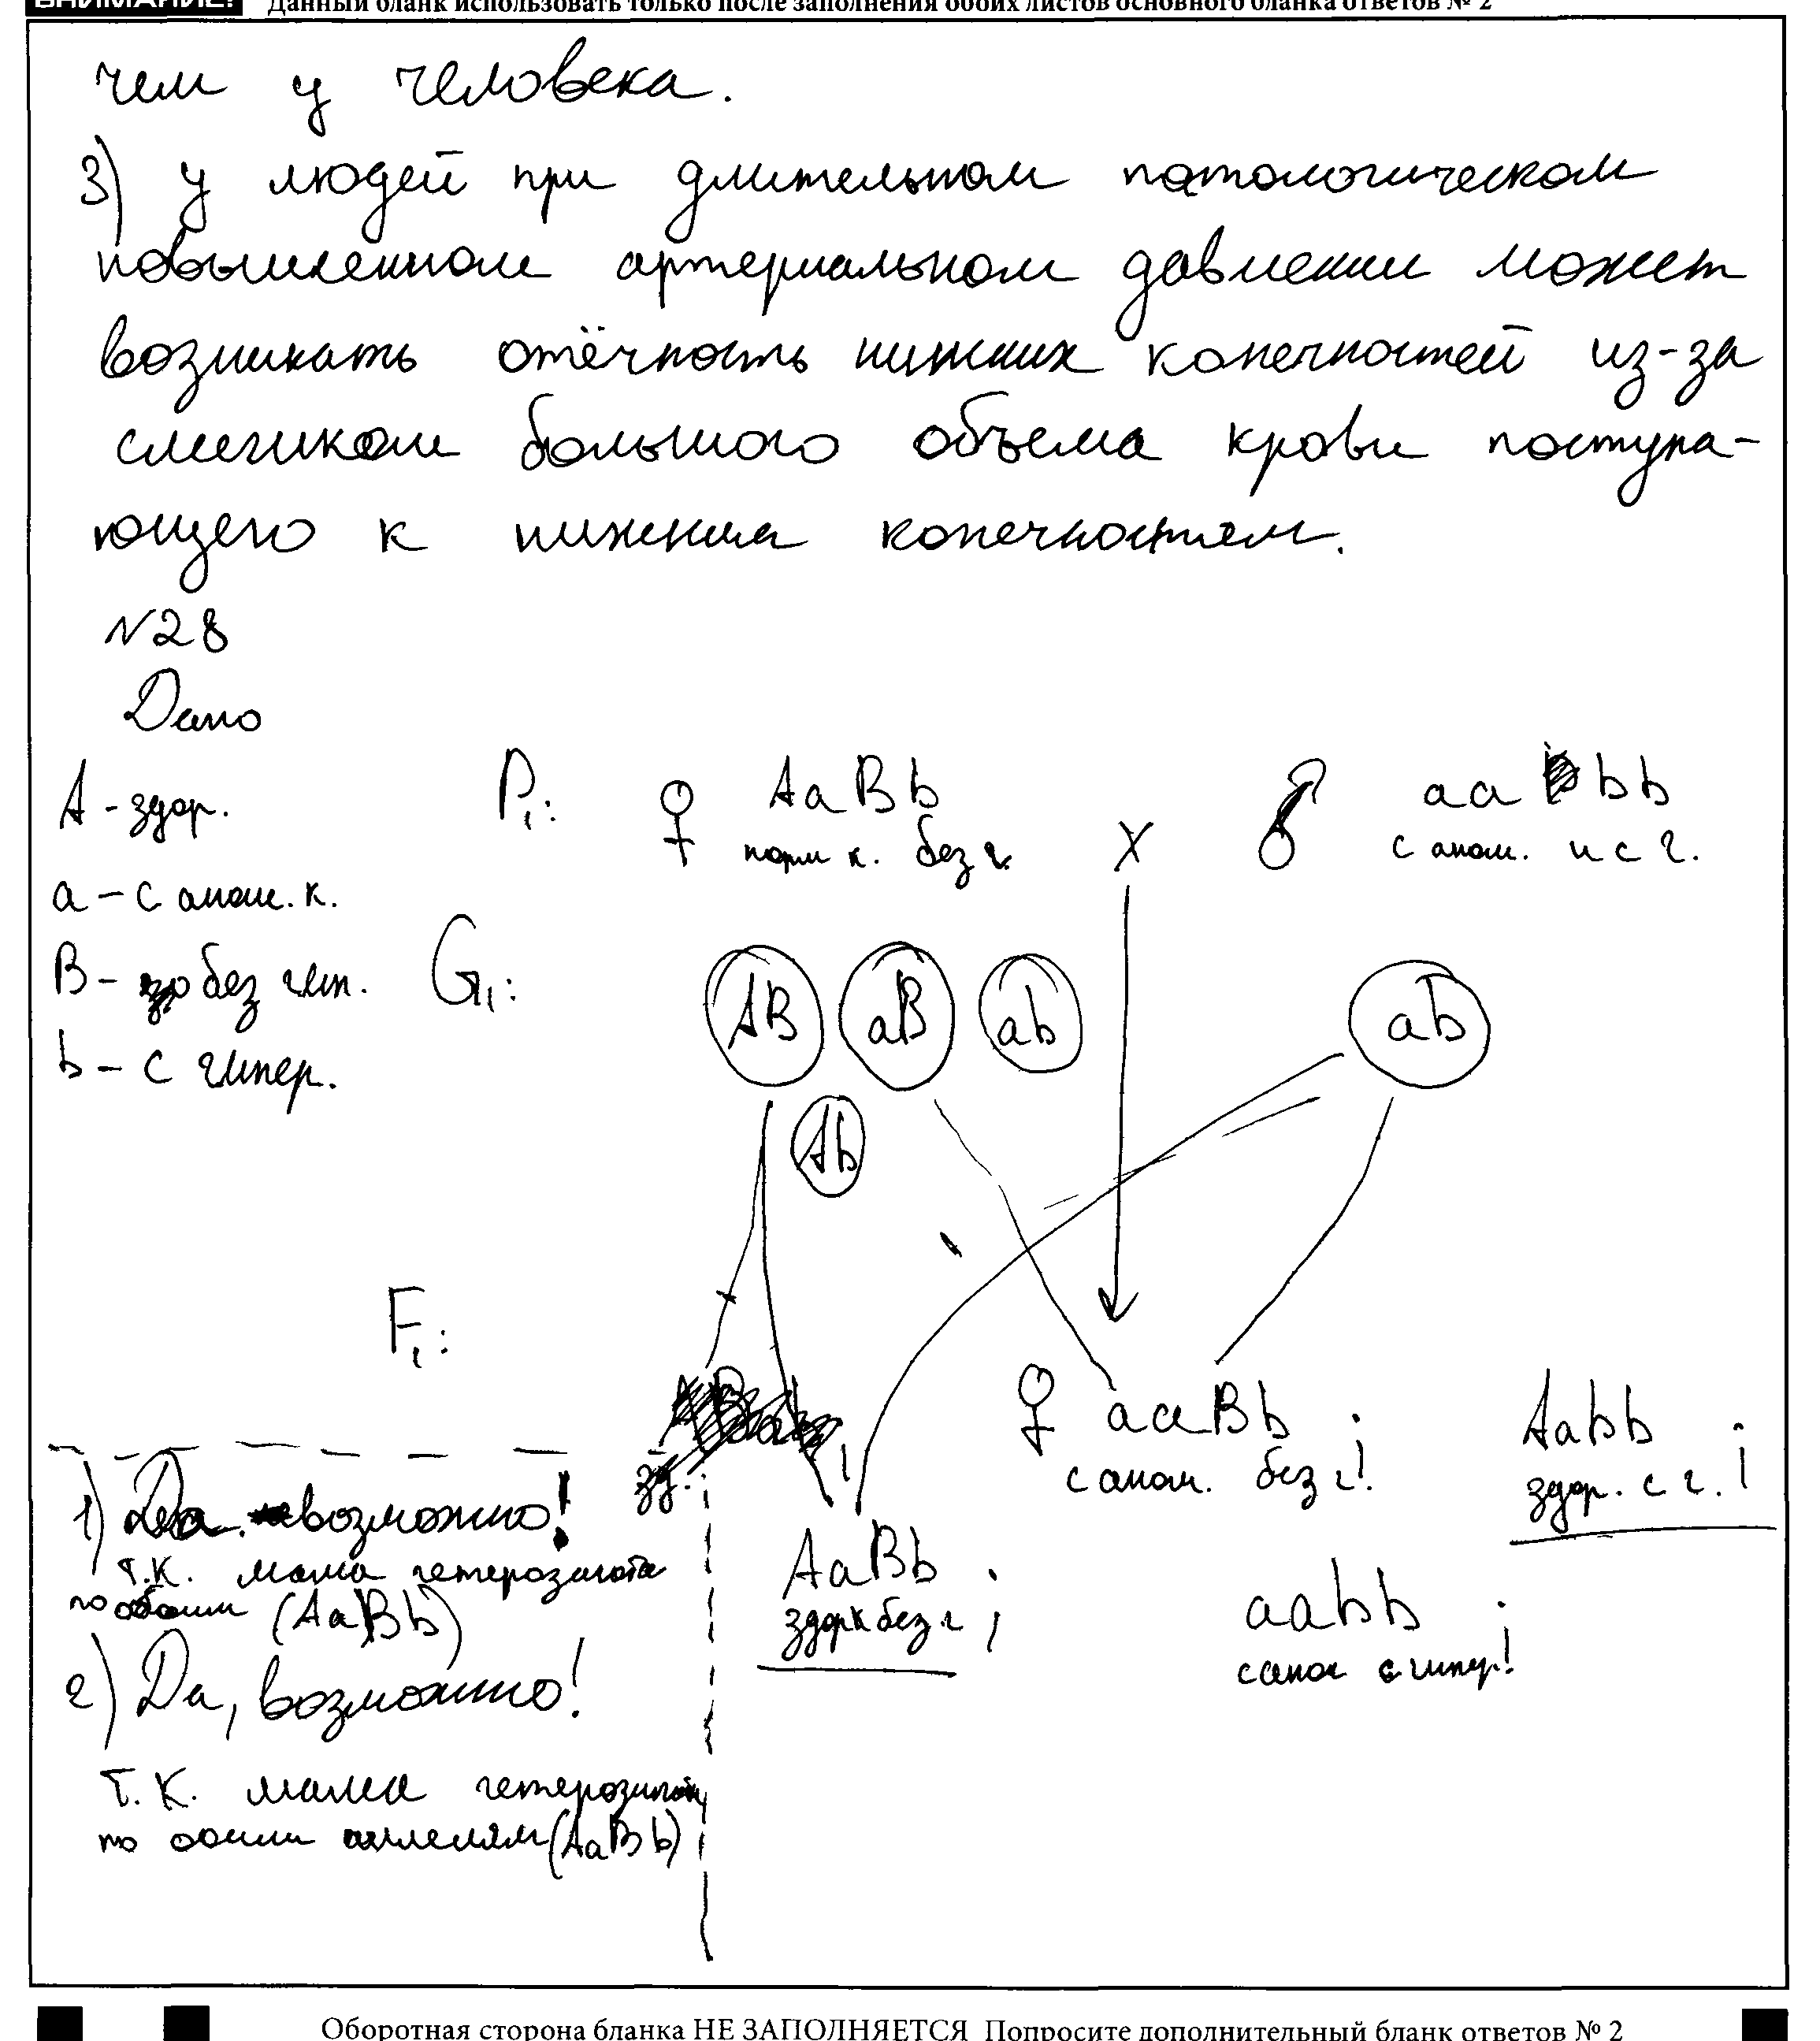 ВНИМАНИЕ! Данный бланк использовать только после заполнения обоих листов основного бланка ответов № 2
чем у человека.
3) у людей при длительном патологическом
повышенном артериальном давлении может
возникать отёчность нижних конечностей из-за
слишком большого объема крови поступа-
ющего к нижним конечностям.
№28
Дано
А - здор.
а - с аном. к.
В - без гип.
b - с гипер.
P₁: ♀ AaBb x ♂ aa bb
норм к. без г. с аном. и с г.
G₁: AB aB ab ab
Ab
F₁:
♀ aaBb ; Aabb ;
с аном. без г! здор. с г. !
AaBb ; aabb ;
здор к без г с аном с гипер!
1) Да. возможно!
т.к. мама гетерозигота
по обоим (AaBb)
2) Да, возможно!
Т.К. мама гетерозигота
по обоим аллелям (AaBb)
Оборотная сторона бланка НЕ ЗАПОЛНЯЕТСЯ Попросите дополнительный бланк ответов № 2